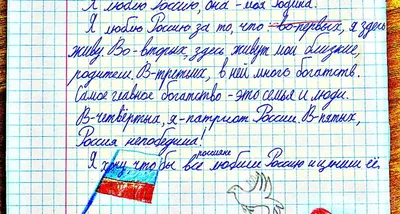 Я люблю Россию, она - моя Родина.
Я люблю Россию за то, что во-первых, я здесь
живу. Во-вторых, здесь живут мои близкие,
родители. В-третьих, в ней много богатств.
Самое главное богатство - это семья и люди.
В-четвёртых, я - патриот России. В-пятых,
Россия непобедима!
россияне
Я хочу что бы все любили Россию и ценили её.